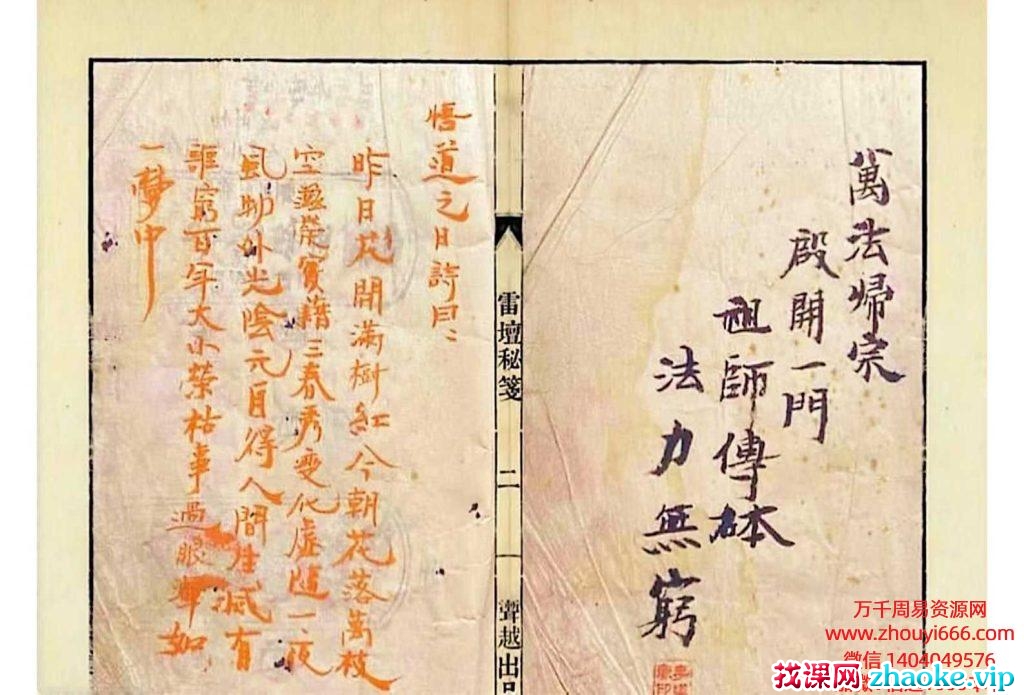 萬法歸宗
殿開一門
祖師傳本
法力無窮
雷壇秘笺
二
聶越出品
悟道之日詩曰：
昨日花開滿樹紅今朝花落萬枝
空滋榮實藉三春秀变化虛隨一夜
風物外光陰元自得人間生滅有
誰窮百年大小荣枯事過眼渾如
一夢中
万千周易资源网
www.zhouyi666.com
微信 1404049576
找课网zhaoke.vip